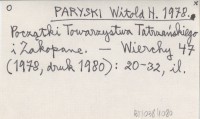 PARYSKI Witold H. 1978.
Początki Towarzystwa Tatrzańskiego
i Zakopane. — Wierchy 47
(1978, druk 1980): 20-32, il.